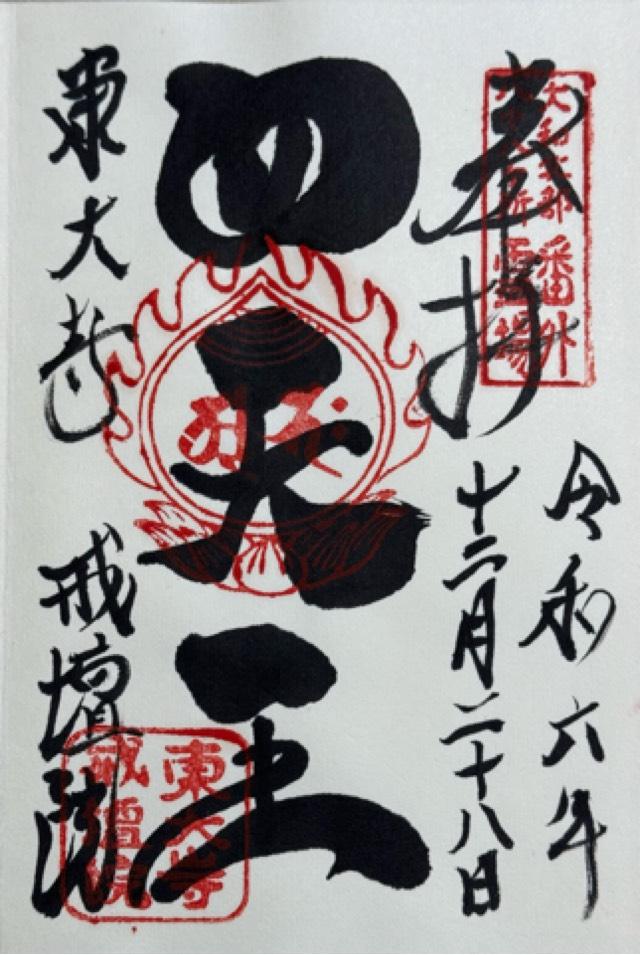 奉拝
令和六年
十二月二十八日
四天王
東大寺 戒壇院
東大寺
戒壇院
番外
霊場